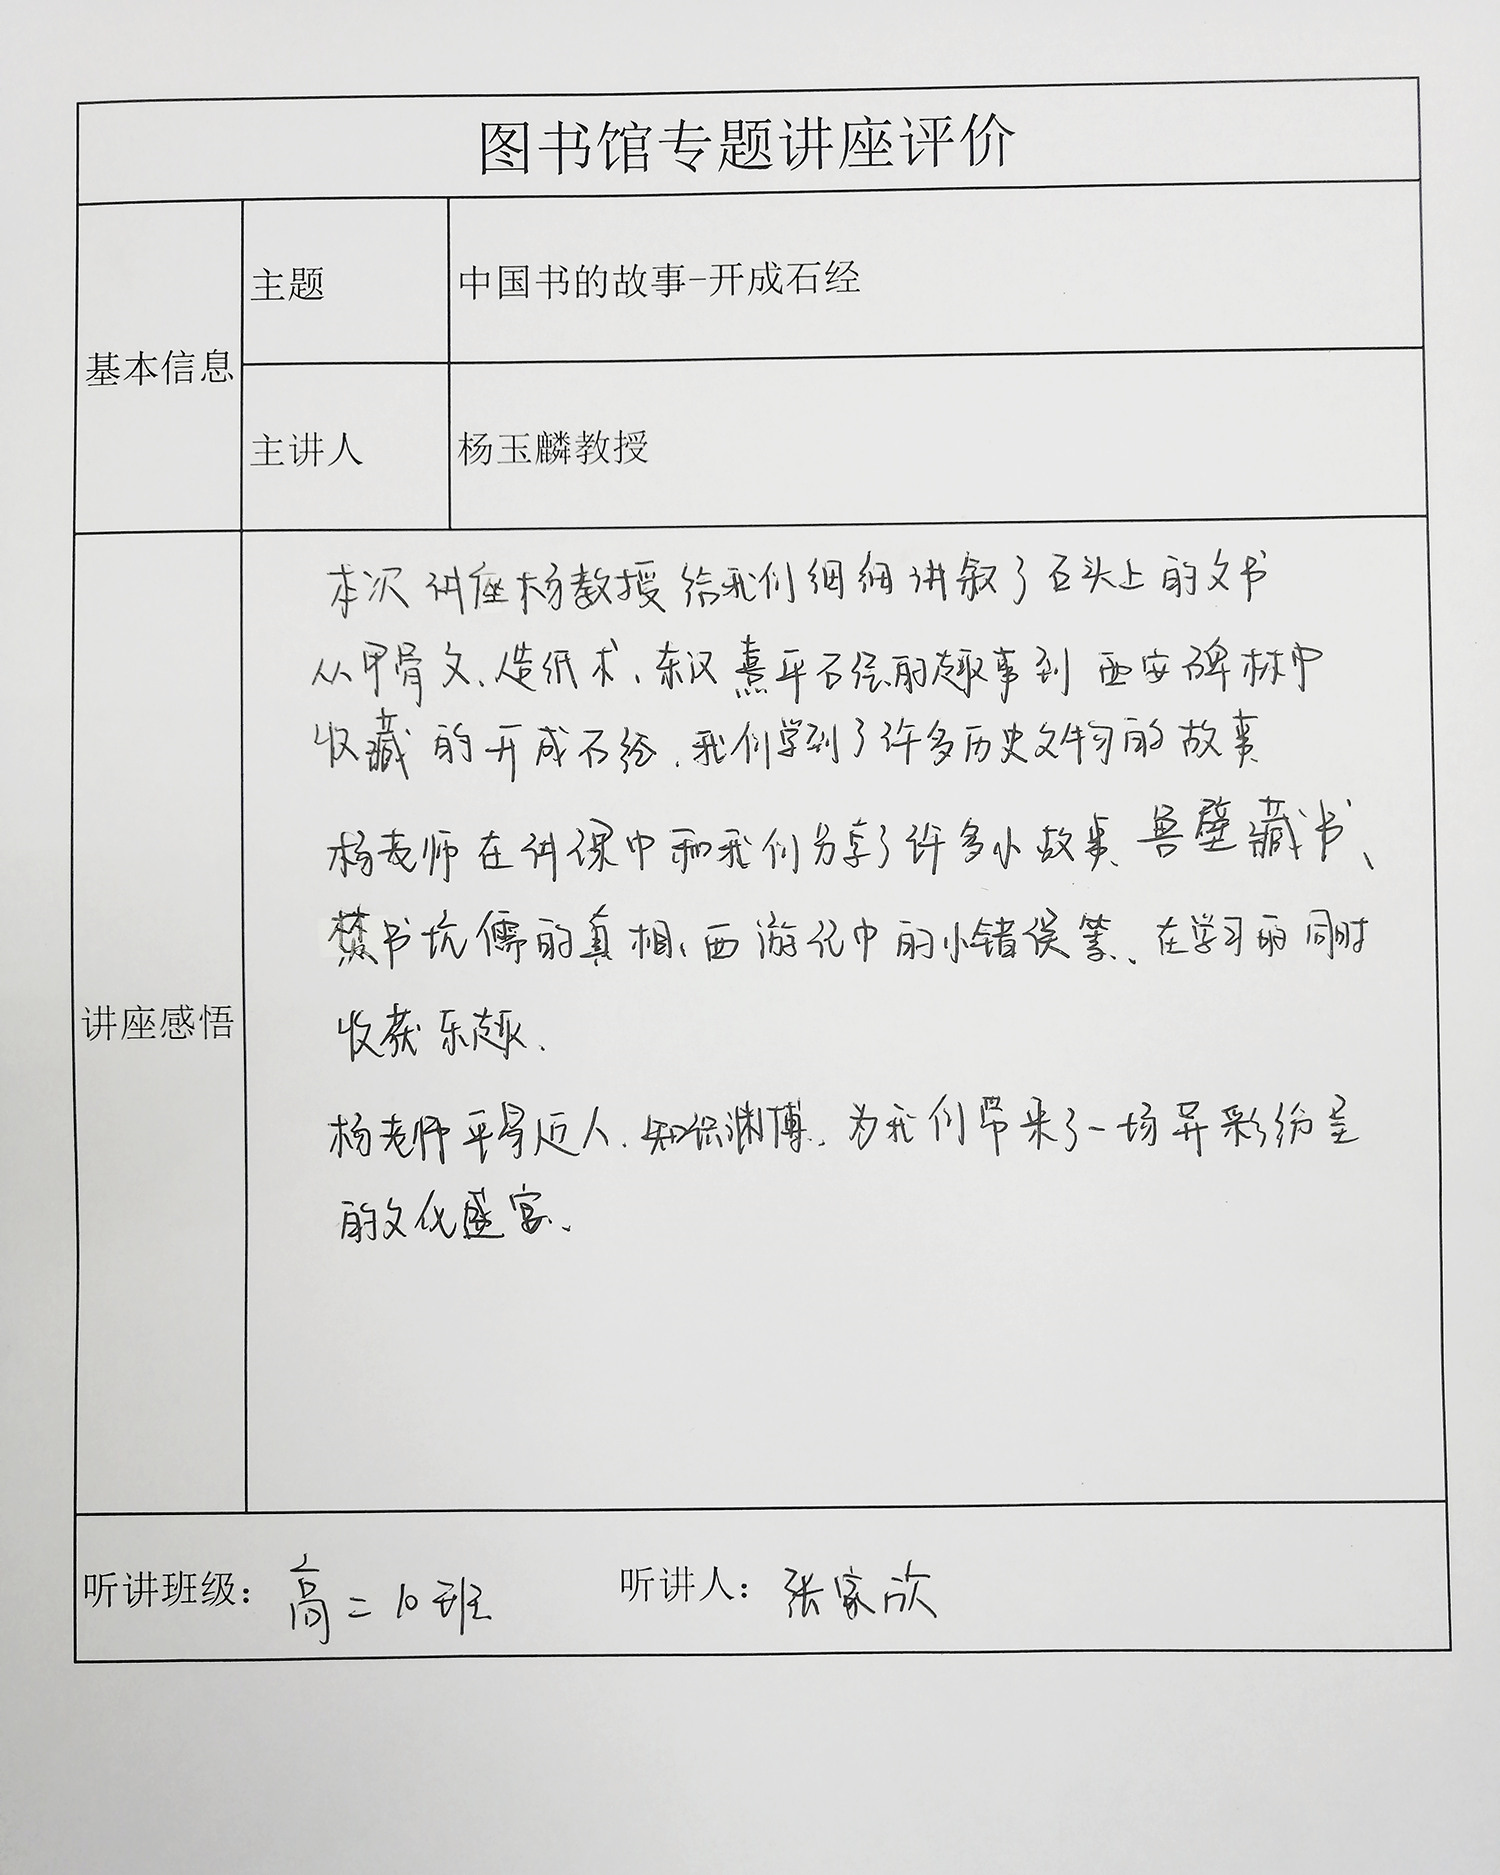 图书馆专题讲座评价
基本信息
主题
中国书的故事-开成石经
主讲人
杨玉麟教授
讲座感悟
本次讲座杨教授给我们细细讲叙了石头上的文书
从甲骨文、造纸术、东汉熹平石经的趣事到西安碑林中
收藏的开成石经、我们学到了许多历史文物的故事
杨老师在讲课中和我们分享了许多小故事、鲁壁藏书、
焚书坑儒的真相、西游记中的小错误等、在学习的同时
收获乐趣、
杨老师平易近人、知识渊博、为我们带来了一场异彩纷呈
的文化盛宴、
听讲班级：高二10班 听讲人：张家欣